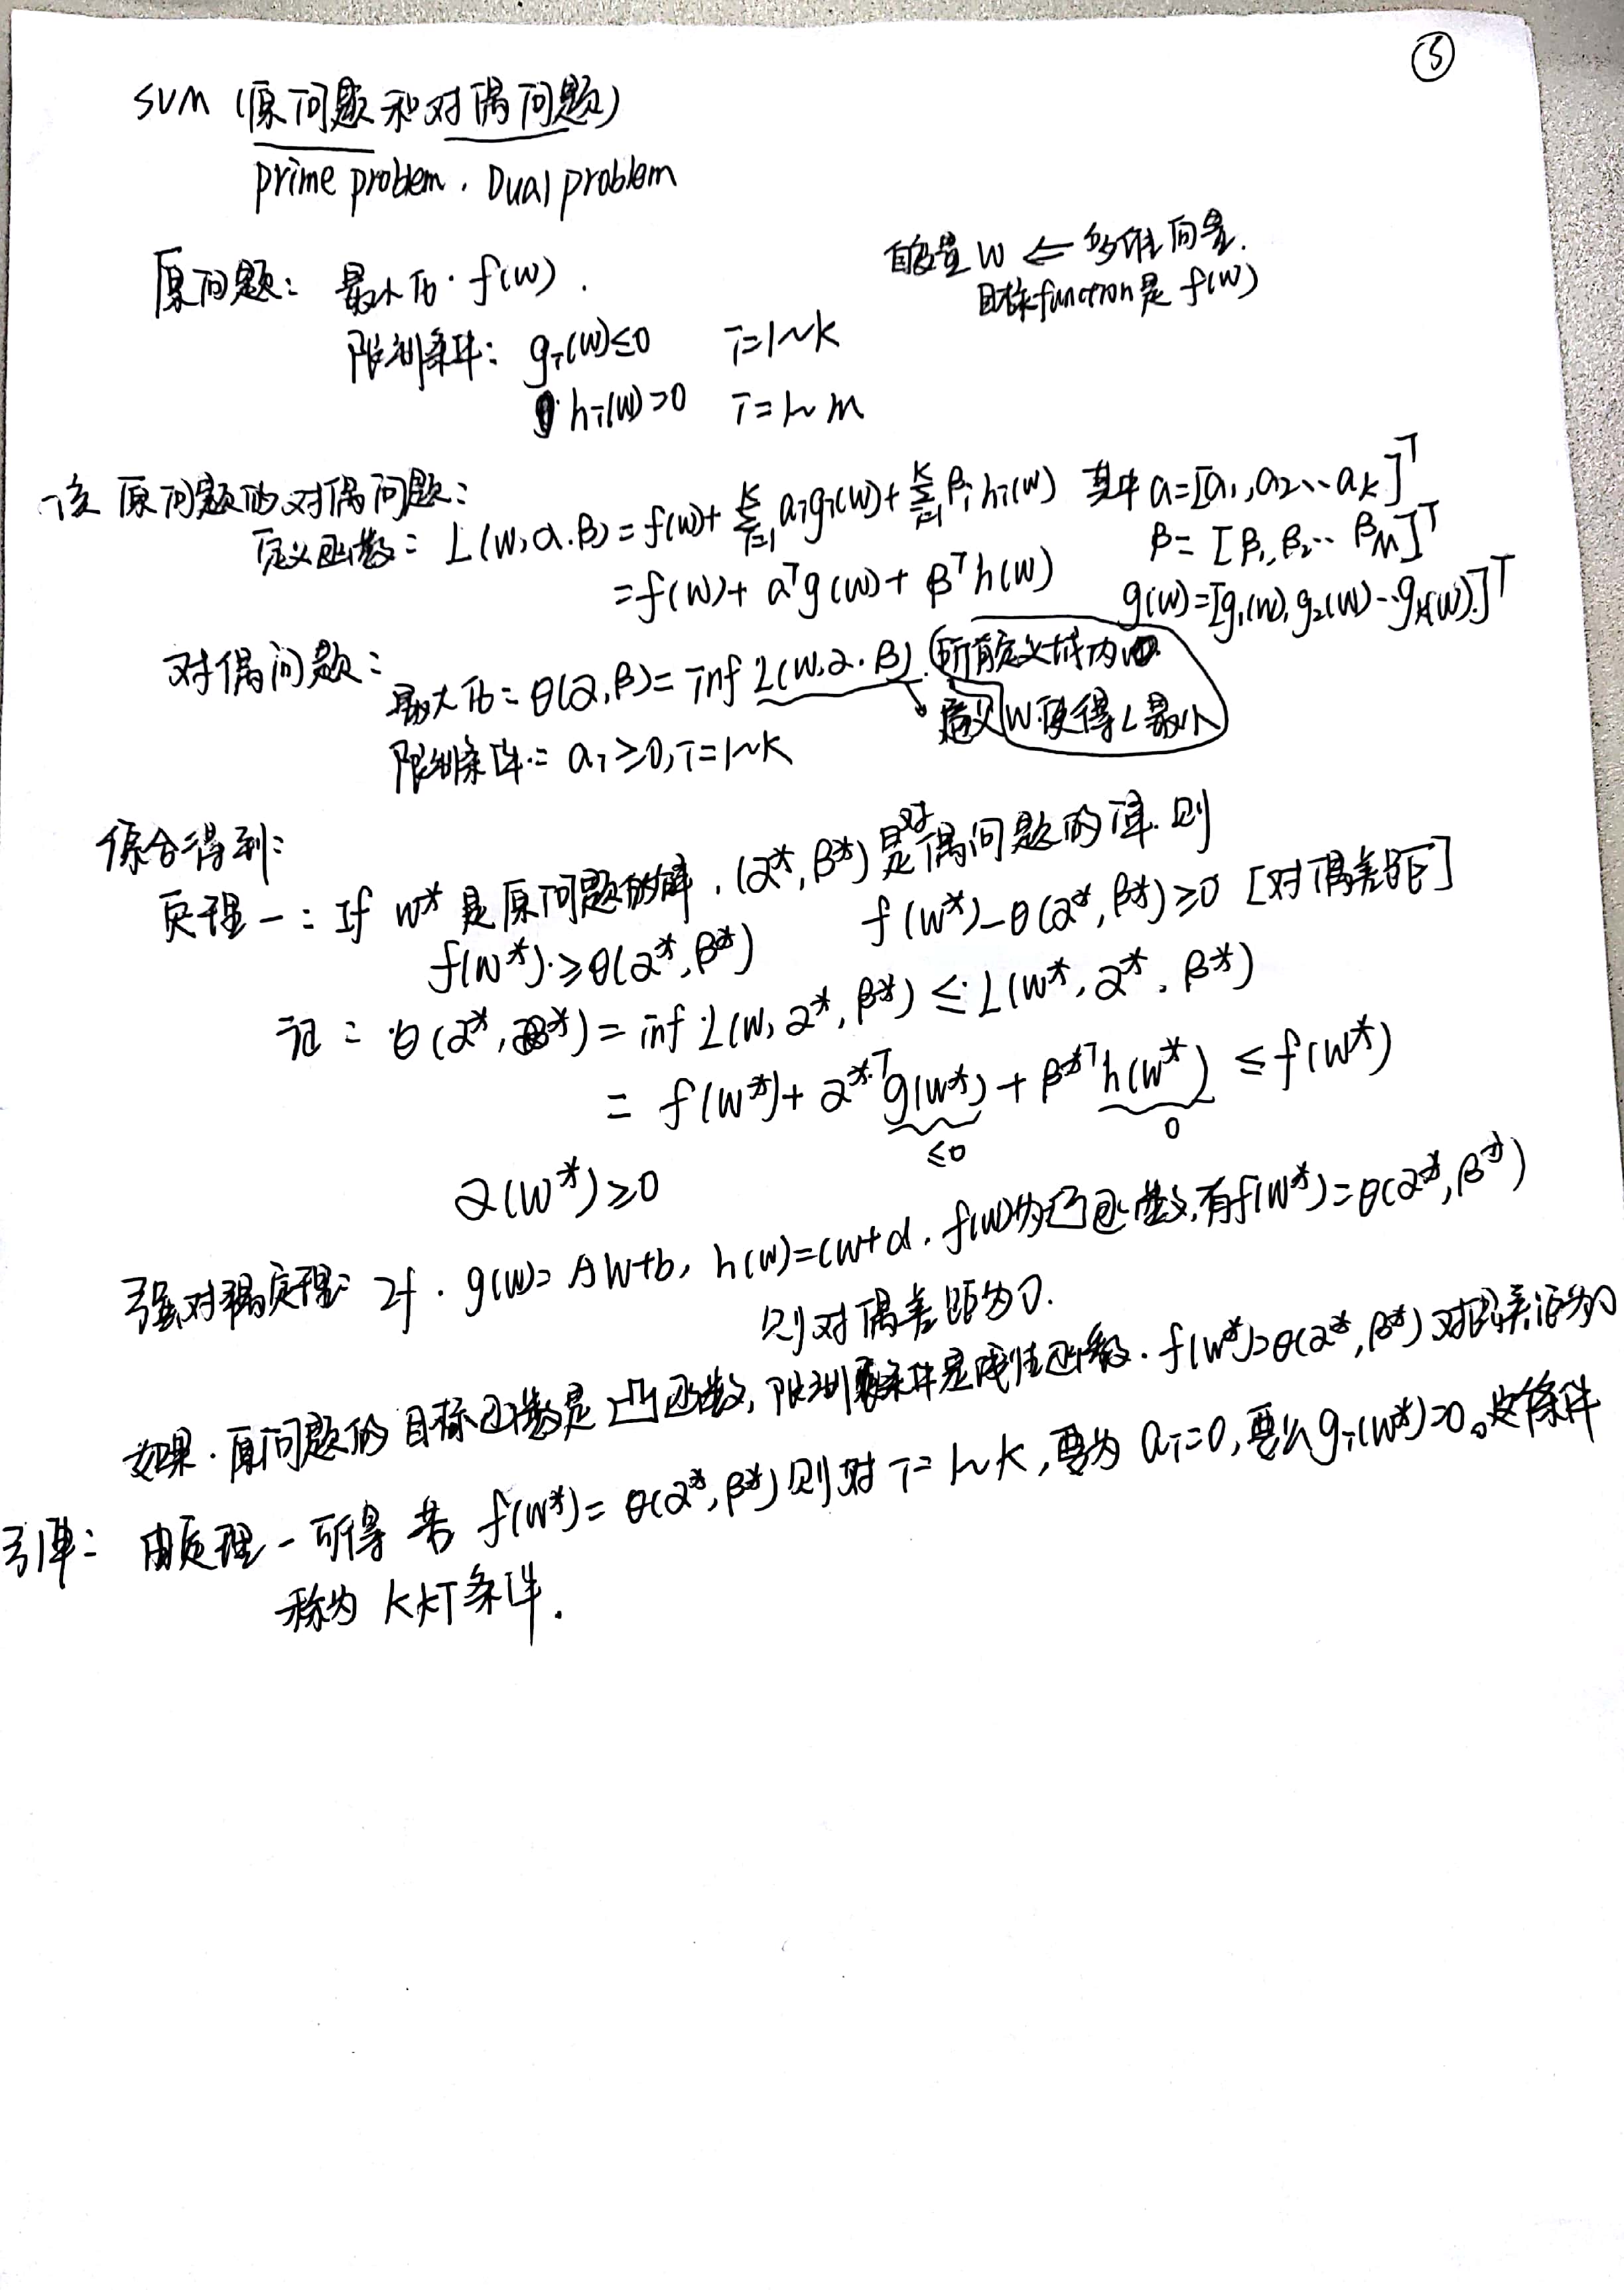 ⑤
SVM (原问题和对偶问题)
prime problem . Dual problem
自变量 W ← 多维向量.
目标function是 f(w)
原问题: 最小化 · f(w) .
限制条件: gi(w)≤0 i=1~K
hi(w)=0 i=1~m
该原问题的对偶问题:
定义函数: L(w,α,β)=f(w)+ K∑i=1 aigi(w)+ K∑i=1 βihi(w) 其中 a=[a1,a2...ak]T
β= [β1,β2... βM]T
=f(w)+ αTg(w)+ βTh(w)
g(w)=[g1(w),g2(w)...gk(w)]T
对偶问题:
最大化: θ(α,β)= inf L(w,α,β) 所有定义域内
遍历 W使得L最小
限制条件: ai≥0,i=1~K
综合得到:
定理一: If w* 是原问题的解 , (α*,β*) 是对偶问题的解.则
f(w*)≥θ(α*,β*) f(w*)-θ(α*,β*)≥0 [对偶差距]
证: θ(α*,β*)= inf L(w,α*,β*) ≤ L(w*,α*,β*)
= f(w*)+ α*Tg(w*)+ β*Th(w*) ≤ f(w*)
≤0 0
α(w*)≥0
强对偶定理: If . g(w)= Aw+b, h(w)=cw+d . f(w)为凸函数,有f(w*)=θ(α*,β*)
则对偶差距为0.
如果.原问题的目标函数是凸函数,限制条件是线性函数. f(w*)=θ(α*,β*) 对偶差距为0
引申: 由定理一可得 若 f(w*)= θ(α*,β*) 则对 i=1~K,要为 ai=0,要么gi(w*)=0。此条件
称为 KKT条件.